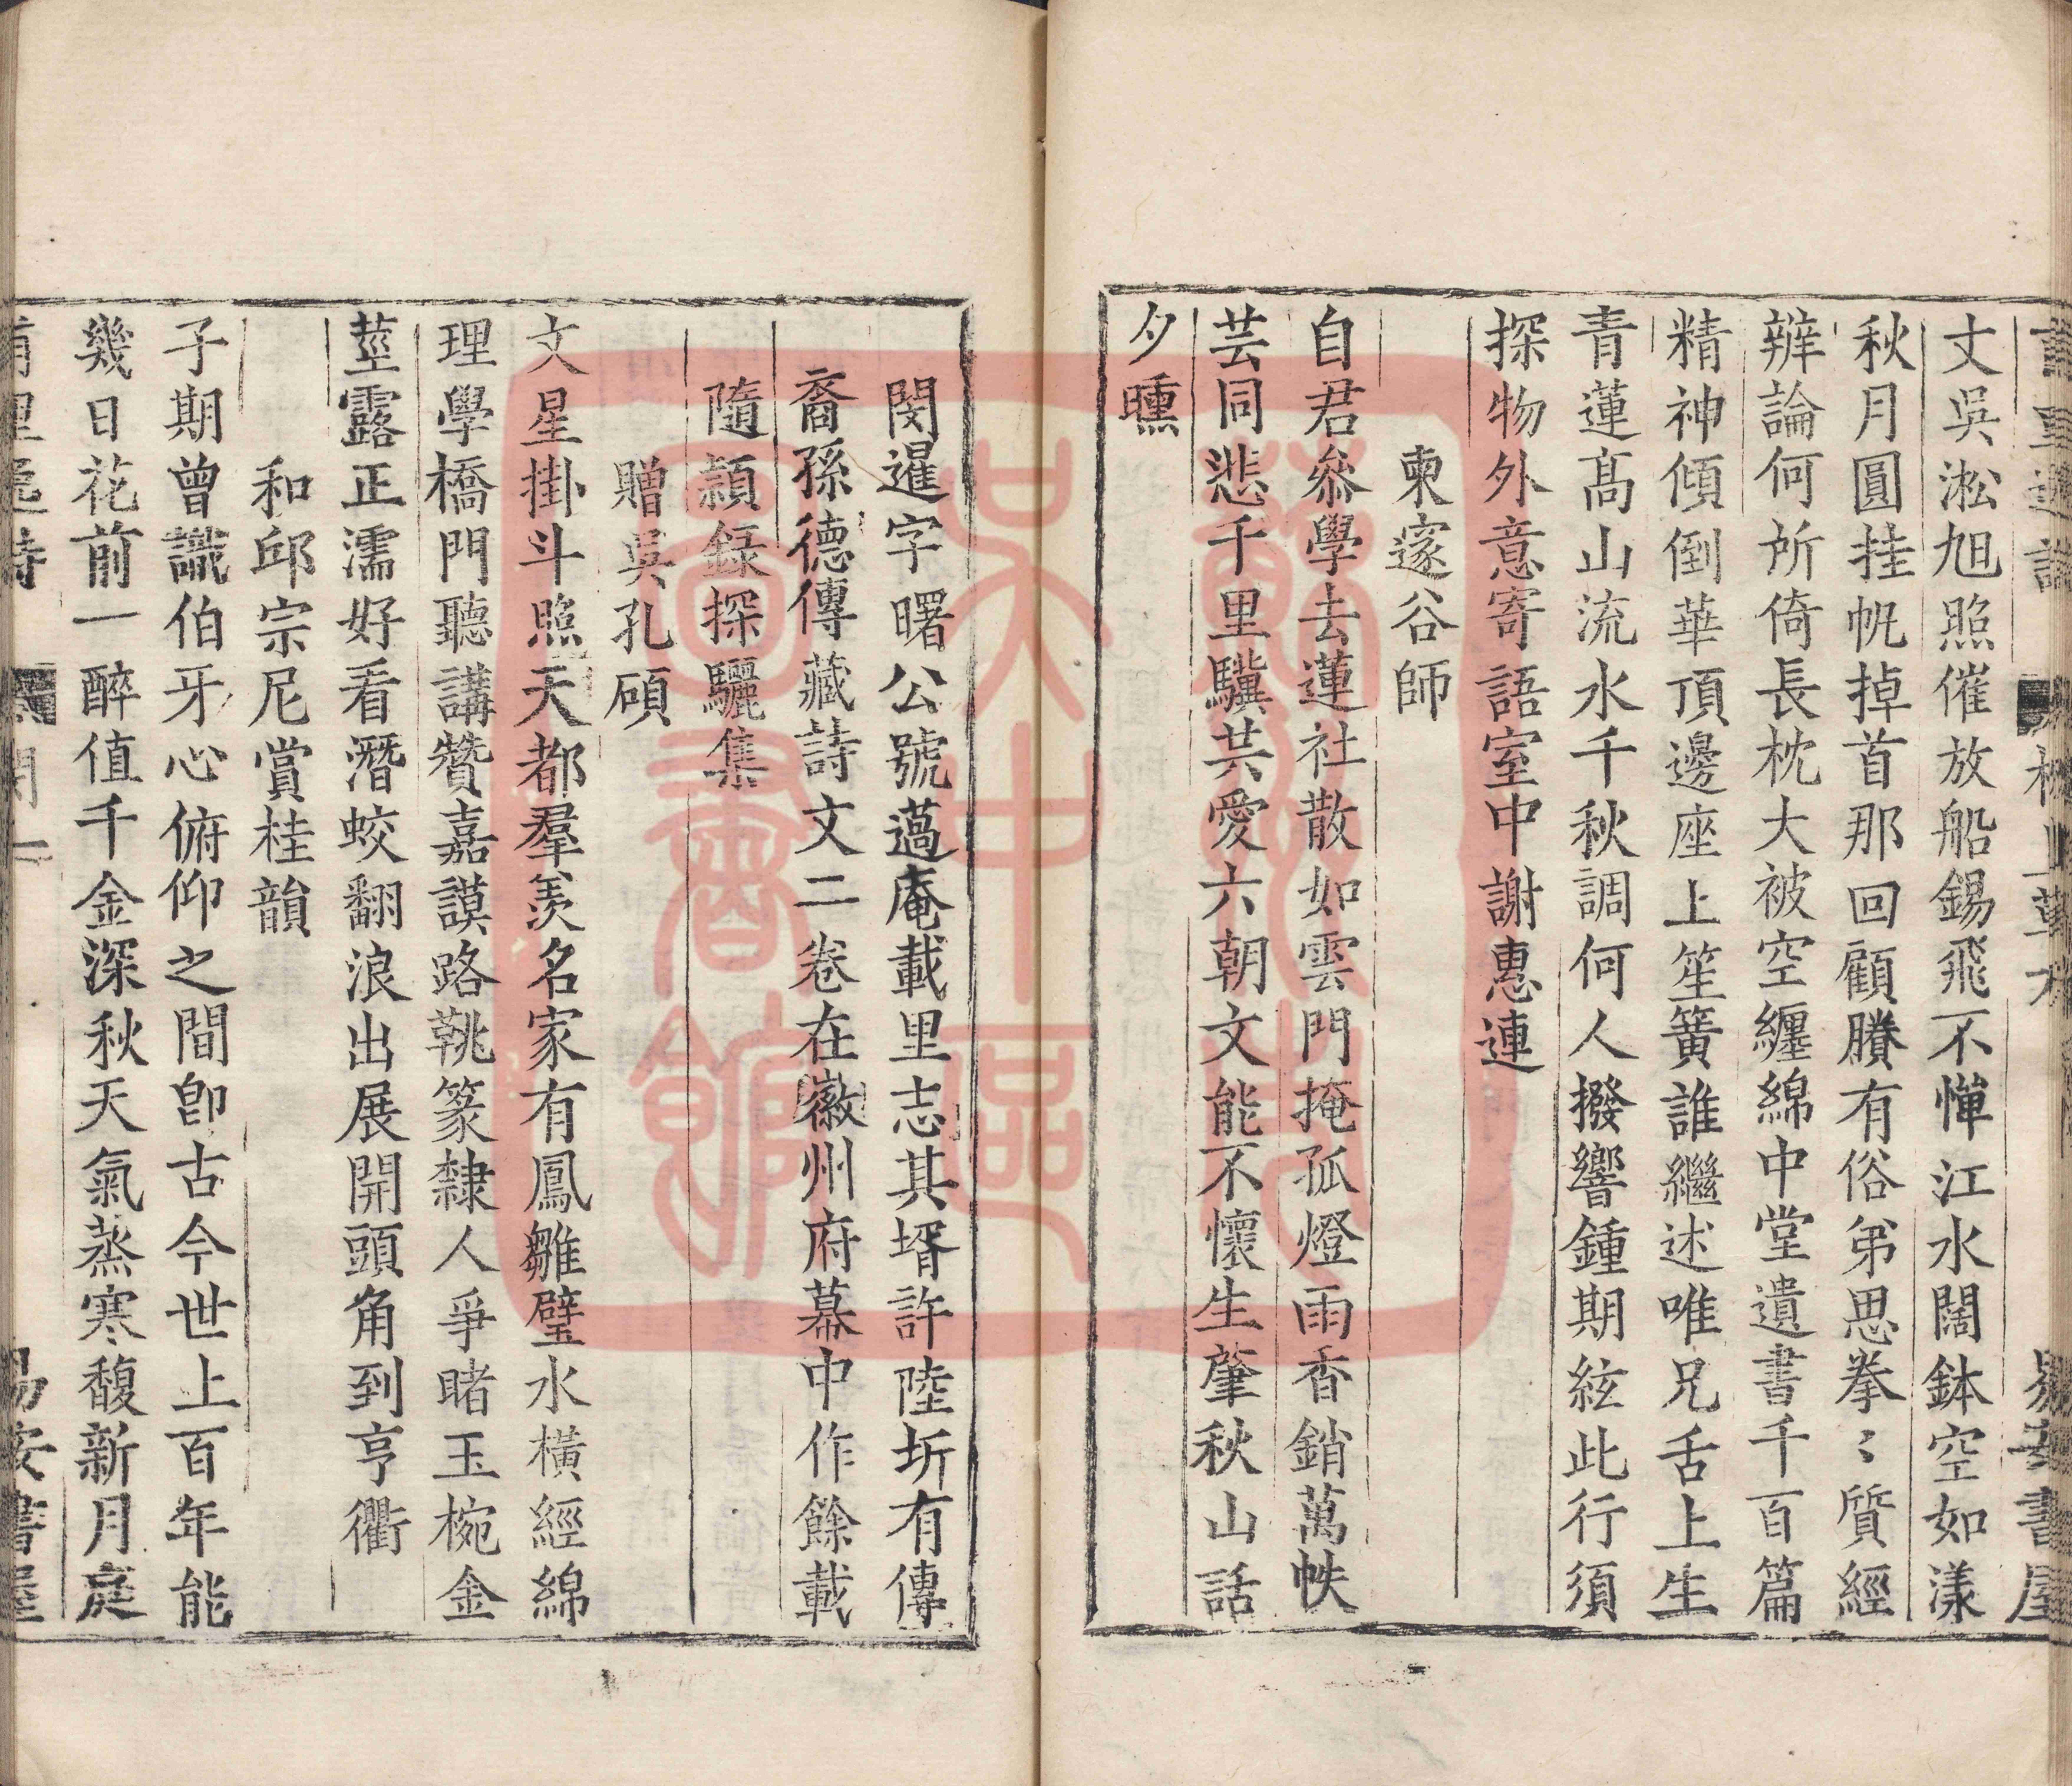 丈吳淞旭照催放船錫飛不憚江水闊鉢空如漾
秋月圓挂帆掉首那回顧賸有俗弟思拳〻質經
辨論何所倚長枕大被空纏綿中堂遺書千百篇
精神傾倒華頂邊座上笙簧誰繼述唯兄舌上生
青蓮高山流水千秋調何人撥響鍾期絃此行須
探物外意寄語室中謝惠連
柬邃谷師
自君叅學去蓮社散如雲門掩孤燈雨香銷萬帙
芸同悲千里驥共愛六朝文能不懷生肇秋山話
夕曛
閔暹字曙公號薖庵載里志其壻許陸圻有傳
裔孫德傳藏詩文二卷在徽州府幕中作餘載
隨潁録探驪集
贈吳孔碩
文星掛斗照天都羣羨名家有鳳雛璧水橫經綿
理學橋門聽講贊嘉謨路靴篆隸人爭睹玉椀金
莖露正濡好看潛蛟翻浪出展開頭角到亨衢
和邱宗尼賞桂韻
子期曾識伯牙心俯仰之間卽古今世上百年能
幾日花前一醉值千金深秋天氣蒸寒馥新月庭
易安書屋